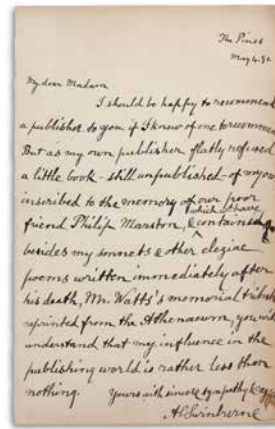 The Pines
May 4. 90
My dear Madam
I should be happy to recommend
a publisher to you if I knew of one to recommend
But as my own publisher flatly refused
a little book - still unpublished - of my own
inscribed to the memory of our poor
friend Philip Marston, & which w'd have
contained
besides my sonnets & other elegiac
poems written immediately after
his death, Mr. Watts's memorial tribute
reprinted from the Athenaeum, you will
understand that my influence in the
publishing world is rather less than
nothing. Yours with sincere sympathy &
ACSwinburne